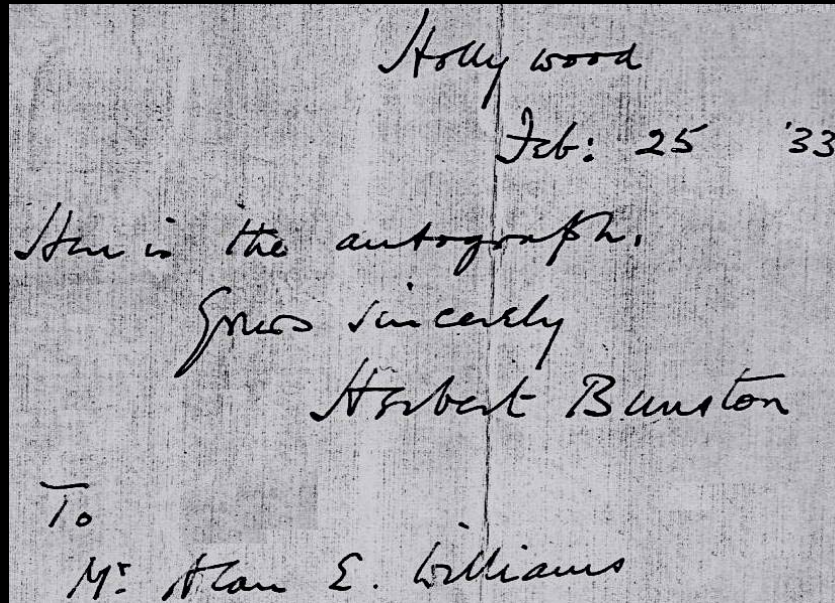 Hollywood
Feb: 25 '33
Here is the autograph.
Yours sincerely
Herbert Bunston
To
Mr. Alan E. Williams